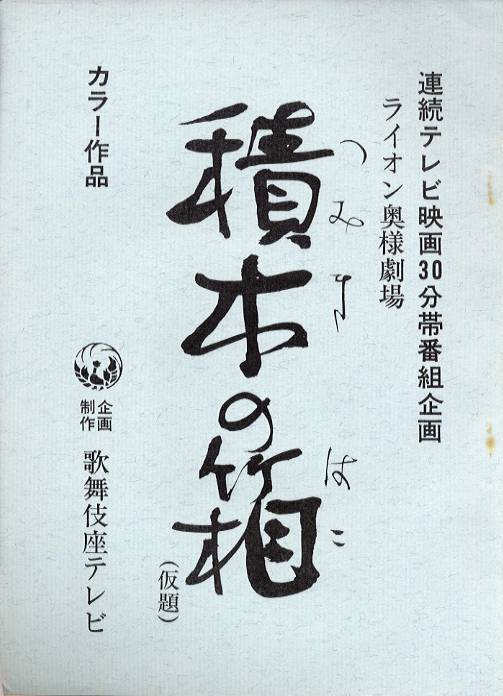 連続テレビ映画30分帯番組企画
ライオン奥様劇場
積木の箱
つみき
はこ
(仮題)
カラー作品
企画
制作
歌舞伎座テレビ